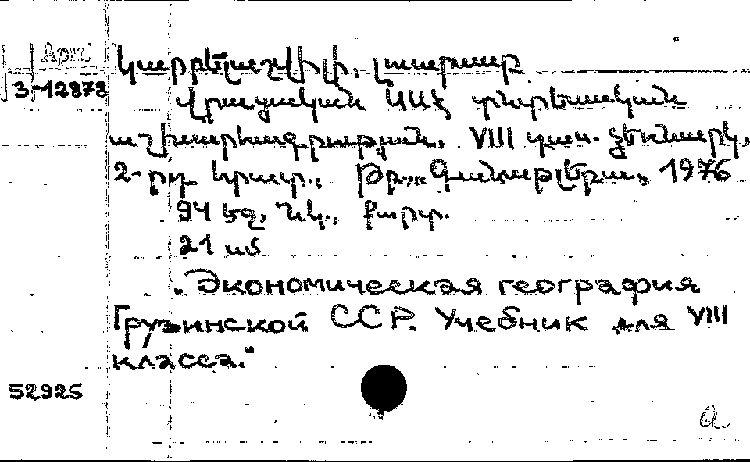 Арм
3-12878
Կարբելաշվիլի, լաարսաբ
Վրացական ՍՍՀ տնտեսական
աշխարհագրություն. VIII դաս. ձեռնարկ,
2-րդ հրատ., Թբ., „Գանաթլեբա„, 1976
94 էջ, նկ., քարտ.
21 սմ
„Экономическая география
Грузинской ССР. Учебник для VIII
класса.“
52925
а